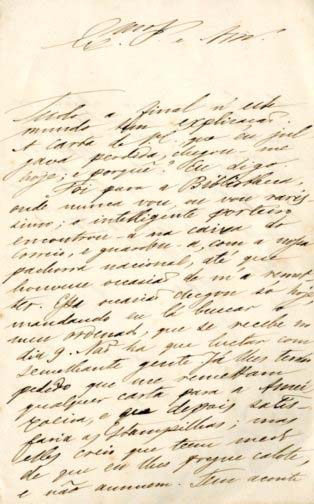 Am.º e Snr.
Tudo a final n'este
mundo tem explicação.
A carta de V. que eu jul
gava perdida, chegou-me
hoje; e porque? Eu digo.
Foi para a Bibliotheca,
onde nunca vou, ou vou raris
simo; o intelligente porteiro
encontrou-a na caixa do
Correio, e guardou-a, com a nossa
pachorra nacional, até que
houvesse occasião de m'a remet
ter. Essa occasião chegou só hoje,
mandando eu lá buscar o
meu ordenado, que se recebe no
dia 9. Não ha que luctar com
semelhante gente. Já lhes tenho
pedido que me remettam
qualquer carta para a Anni
e que depois satis
faria as estampilhas; mas
elles creio que tem medo
de que eu lhes pregue calote
e não annuem. Tem aconte